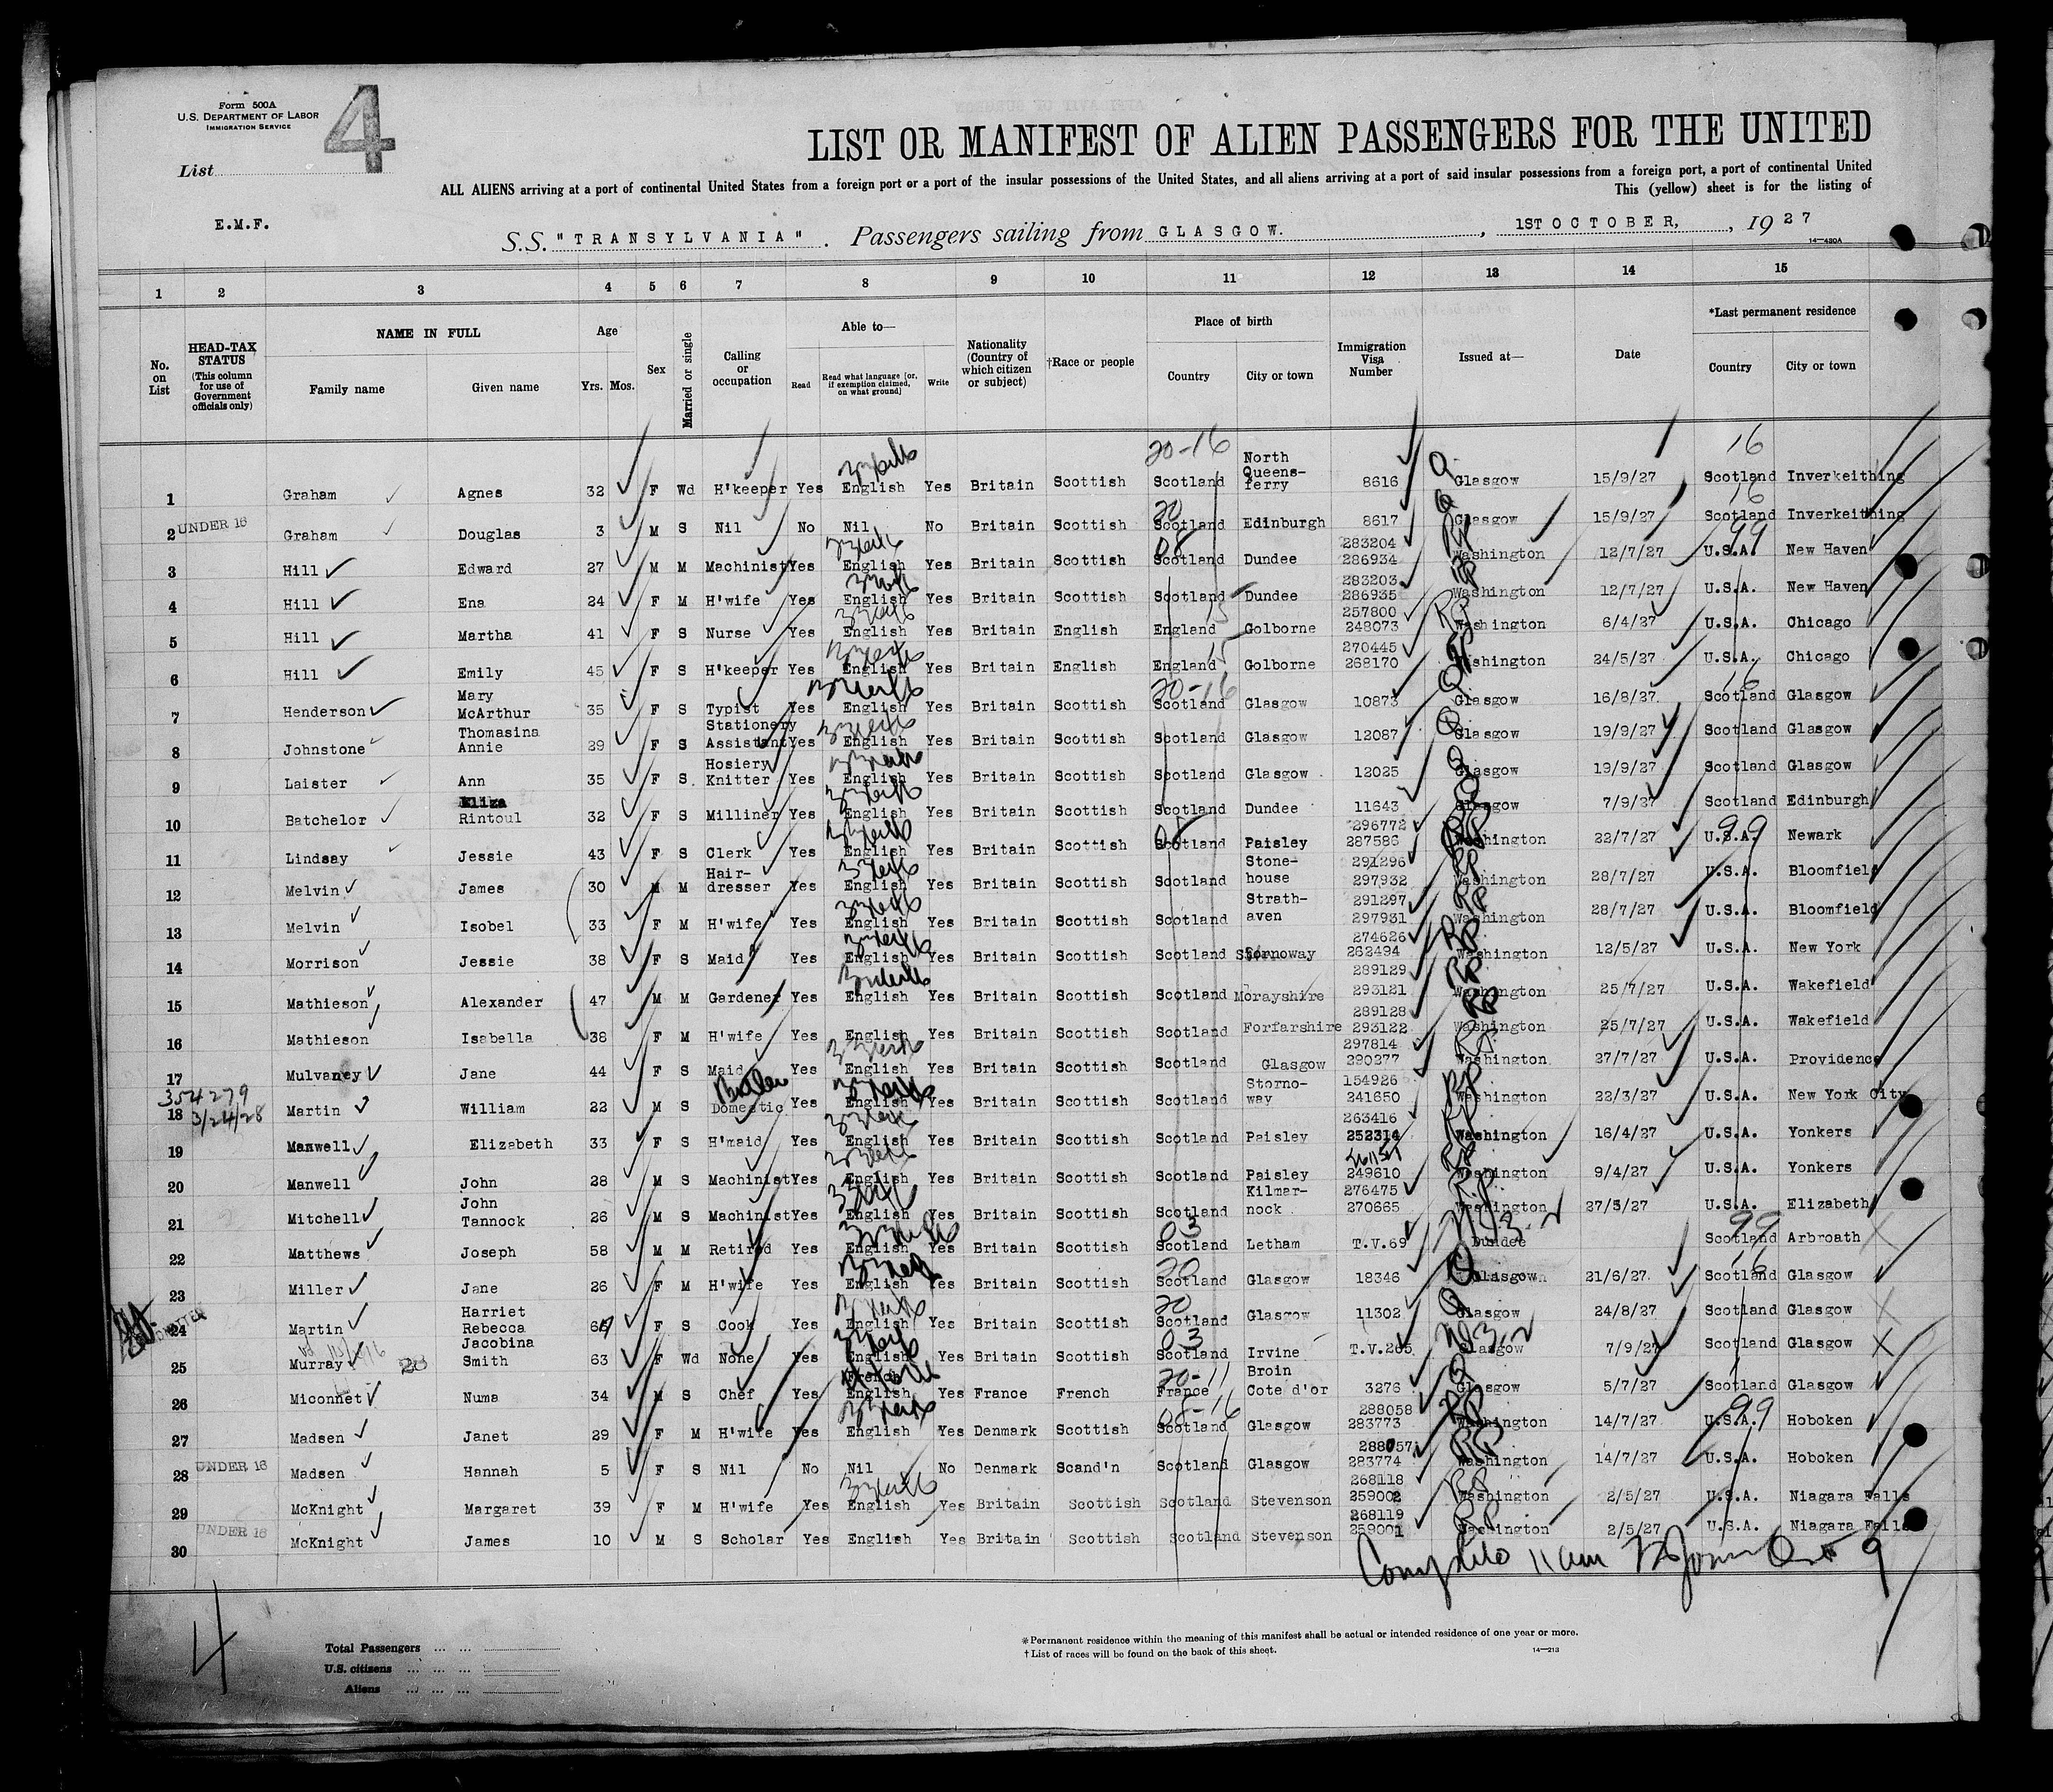 Form 500A
U.S. DEPARTMENT OF LABOR
IMMIGRATION SERVICE
4
List
LIST OR MANIFEST OF ALIEN PASSENGERS FOR THE UNITED
ALL ALIENS arriving at a port of continental United States from a foreign port or a port of the insular possessions of the United States, and all aliens arriving at a port of said insular possessions from a foreign port, a port of continental United
This (yellow) sheet is for the listing of
E.M.F.
S.S. "TRANSYLVANIA". Passengers sailing from GLASGOW. , 1ST OCTOBER, , 1927
14—430A
1 2 3 4 5 6 7 8 9 10 11 12 13 14 15
No. on List
HEAD-TAX STATUS (This column for use of Government officials only)
NAME IN FULL
Family name Given name
Age
Yrs. Mos.
Sex
Married or single
Calling or occupation
Able to—
Read Read what language [or, if exemption claimed, on what ground] Write
Nationality (Country of which citizen or subject)
†Race or people
Place of birth
Country City or town
Immigration Visa Number
Issued at—
Date
*Last permanent residence
Country City or town
20-16 16
1 Graham Agnes 32 F Wd H'keeper Yes English Yes Britain Scottish Scotland North Queens-ferry 8616 Glasgow 15/9/27 Scotland Inverkeithing
20 16
2 UNDER 16 Graham Douglas 3 M S Nil No Nil No Britain Scottish Scotland Edinburgh 8617 Glasgow 15/9/27 Scotland Inverkeithing
08 99
3 Hill Edward 27 M M Machinist Yes English Yes Britain Scottish Scotland Dundee 283204 286934 RP Washington 12/7/27 U.S.A. New Haven
4 Hill Ena 24 F M H'wife Yes English Yes Britain Scottish Scotland Dundee 283203 286935 RP Washington 12/7/27 U.S.A. New Haven
15
5 Hill Martha 41 F S Nurse Yes English Yes Britain English England Golborne 257800 248073 RP Washington 6/4/27 U.S.A. Chicago
15
6 Hill Emily 45 F S H'keeper Yes English Yes Britain English England Golborne 270445 268170 RP Washington 24/5/27 U.S.A. Chicago
20-16 16
7 Henderson Mary McArthur 35 F S Typist Yes English Yes Britain Scottish Scotland Glasgow 10873 Glasgow 16/8/27 Scotland Glasgow
8 Johnstone Thomasina Annie 29 F S Stationery Assistant Yes English Yes Britain Scottish Scotland Glasgow 12087 Glasgow 19/9/27 Scotland Glasgow
9 Laister Ann 35 F S Hosiery Knitter Yes English Yes Britain Scottish Scotland Glasgow 12025 Glasgow 19/9/27 Scotland Glasgow
10 Batchelor Eliza Rintoul 32 F S Milliner Yes English Yes Britain Scottish Scotland Dundee 11643 Glasgow 7/9/27 Scotland Edinburgh
99
11 Lindsay Jessie 43 F S Clerk Yes English Yes Britain Scottish Scotland Paisley 296772 287586 RP Washington 22/7/27 U.S.A. Newark
12 Melvin James 30 M M Hair-dresser Yes English Yes Britain Scottish Scotland Stone-house 291296 297932 RP Washington 28/7/27 U.S.A. Bloomfield
13 Melvin Isobel 33 F M H'wife Yes English Yes Britain Scottish Scotland Strath-aven 291297 297931 RP Washington 28/7/27 U.S.A. Bloomfield
14 Morrison Jessie 38 F S Maid Yes English Yes Britain Scottish Scotland Stornoway 274626 262494 RP Washington 12/5/27 U.S.A. New York
15 Mathieson Alexander 47 M M Gardener Yes English Yes Britain Scottish Scotland Morayshire 289129 293121 RP Washington 25/7/27 U.S.A. Wakefield
16 Mathieson Isabella 38 F M H'wife Yes English Yes Britain Scottish Scotland Forfarshire 289128 293122 RP Washington 25/7/27 U.S.A. Wakefield
17 Mulvaney Jane 44 F S Maid Yes English Yes Britain Scottish Scotland Glasgow 297814 290277 RP Washington 27/7/27 U.S.A. Providence
354279
3/24/28
18 Martin William 22 M S Butler Domestic Yes English Yes Britain Scottish Scotland Storno-way 154926 241650 RP Washington 22/3/27 U.S.A. New York City
19 Manwell Elizabeth 33 F S H'maid Yes English Yes Britain Scottish Scotland Paisley 263416 252314 RP Washington 16/4/27 U.S.A. Yonkers
20 Manwell John 28 M S Machinist Yes English Yes Britain Scottish Scotland Paisley 249610 RP Washington 9/4/27 U.S.A. Yonkers
21 Mitchell John Tannock 26 M S Machinist Yes English Yes Britain Scottish Scotland Kilmar-nock 276475 270665 R.P. Washington 27/5/27 U.S.A. Elizabeth
03 99
22 Matthews Joseph 58 M M Retired Yes English Yes Britain Scottish Scotland Letham T.V.69 Dundee Scotland Arbroath
20 16
23 Miller Jane 26 F M H'wife Yes English Yes Britain Scottish Scotland Glasgow 18346 Glasgow 21/6/27 Scotland Glasgow
20
24 Martin Harriet Rebecca F S Cook Yes English Yes Britain Scottish Scotland Glasgow 11302 Glasgow 24/8/27 Scotland Glasgow
03
25 Murray Jacobina Smith 63 F Wd None Yes English Yes Britain Scottish Scotland Irvine T.V.265 Glasgow 7/9/27 Scotland Glasgow
20-11
26 Miconnet Numa 34 M S Chef Yes French English Yes France French France Broin Cote d'or 3276 Glasgow 5/7/27 Scotland Glasgow
08-16 99
27 Madsen Janet 29 F M H'wife Yes English Yes Denmark Scottish Scotland Glasgow 288058 283773 RP Washington 14/7/27 U.S.A. Hoboken
28 UNDER 16 Madsen Hannah 5 F S Nil No Nil No Denmark Scand'n Scotland Glasgow 288057 283774 RP Washington 14/7/27 U.S.A. Hoboken
29 McKnight Margaret 39 F M H'wife Yes English Yes Britain Scottish Scotland Stevenson 268118 259002 RP Washington 2/5/27 U.S.A. Niagara Falls
30 UNDER 16 McKnight James 10 M S Scholar Yes English Yes Britain Scottish Scotland Stevenson 268119 259001 RP Washington 2/5/27 U.S.A. Niagara Falls
11 am
4
Total Passengers ... ...
U.S. citizens ... ... ...
Aliens ... ... ...
*Permanent residence within the meaning of this manifest shall be actual or intended residence of one year or more.
† List of races will be found on the back of this sheet.
14—213